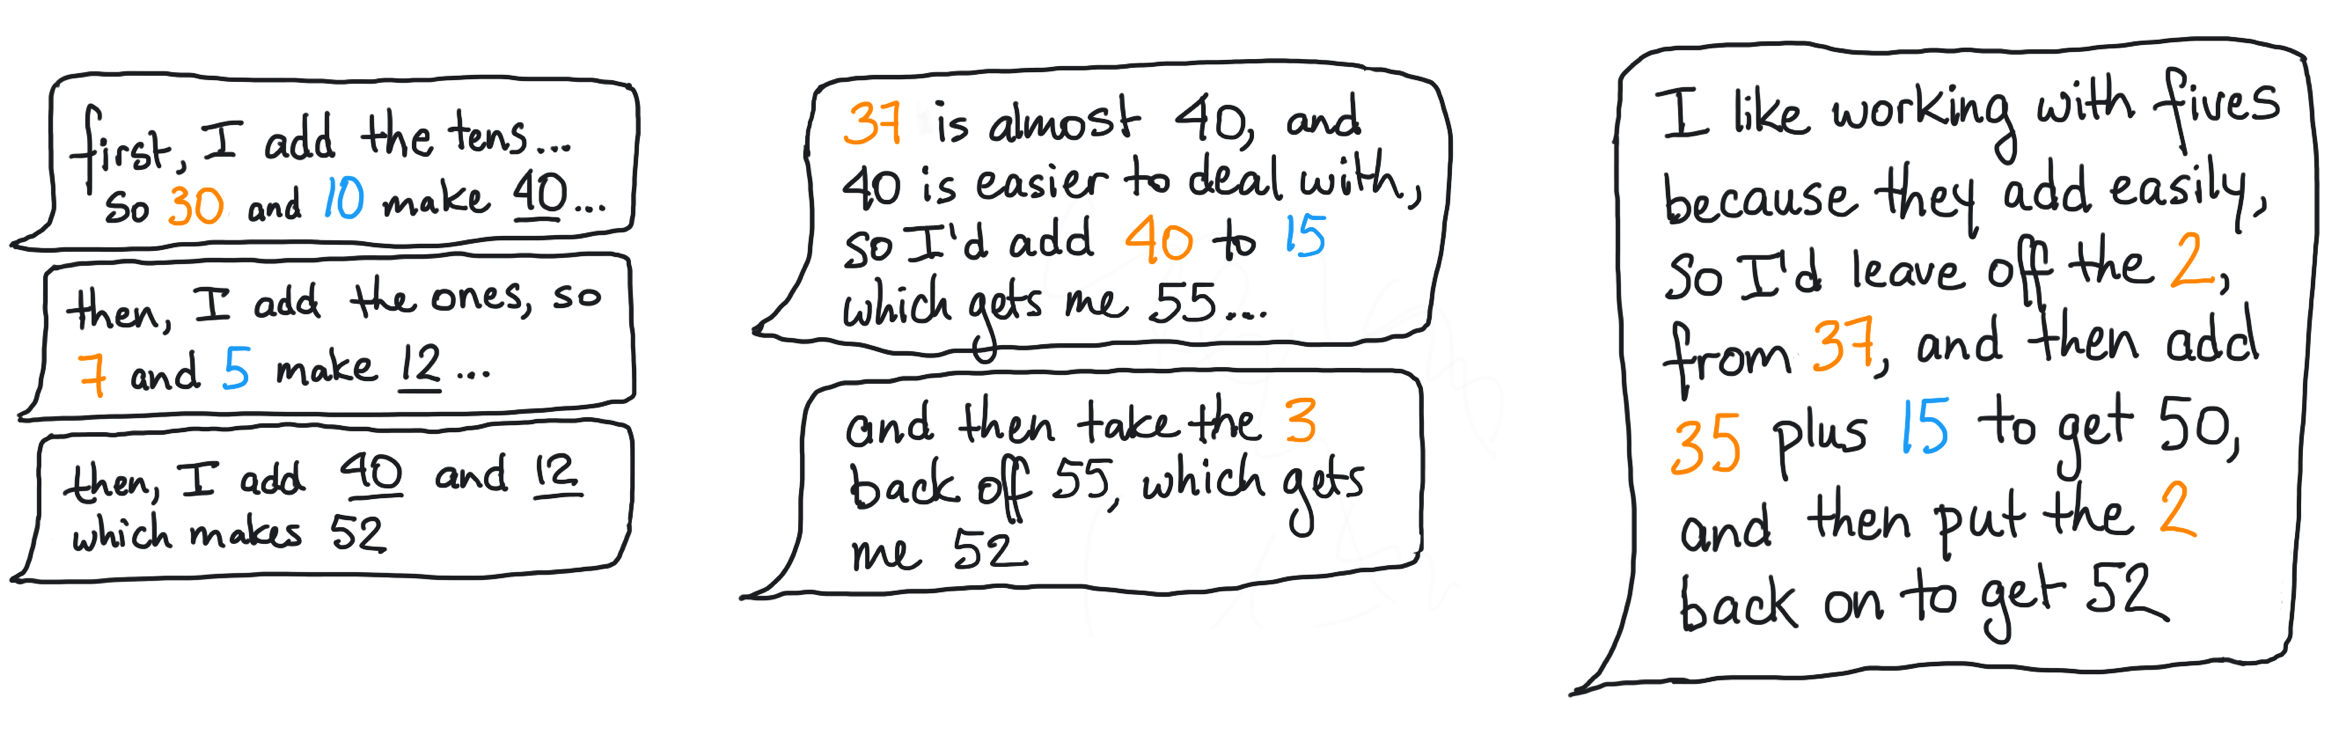 first, I add the tens...
so 30 and 10 make 40...
then, I add the ones, so
7 and 5 make 12...
then, I add 40 and 12
which makes 52
37 is almost 40, and
40 is easier to deal with,
so I'd add 40 to 15
which gets me 55...
and then take the 3
back off 55, which gets
me 52
I like working with fives
because they add easily,
so I'd leave off the 2,
from 37, and then add
35 plus 15 to get 50,
and then put the 2
back on to get 52